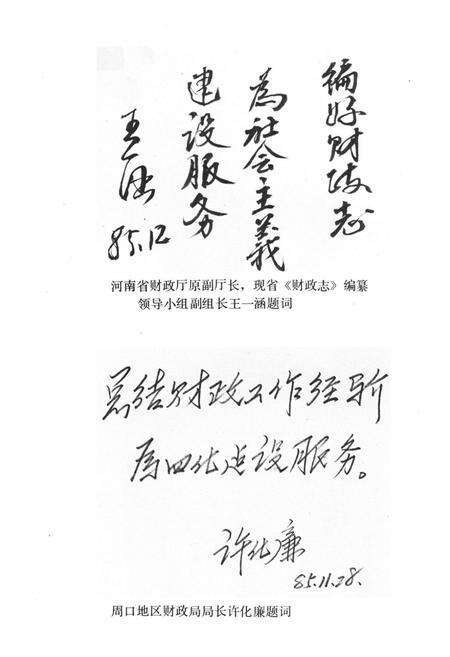 编好财政志
為社会主義
建设服务
王一涵
85.12
河南省财政厅原副厅长，现省《财政志》编纂
领导小组副组长王一涵题词
总结财政工作经验
为四化建设服务。
许化廉
85.11.28.
周口地区财政局局长许化廉题词